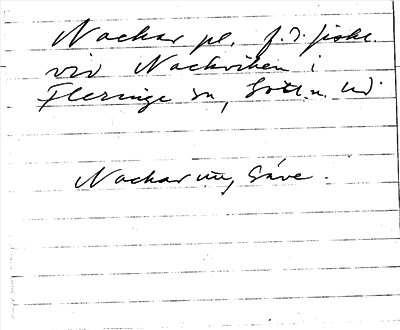 Nackar pl. f.d. fiske
vid Nackviken i
Fleringe sn, Gotl. n. hd
Nackar un, Säve.